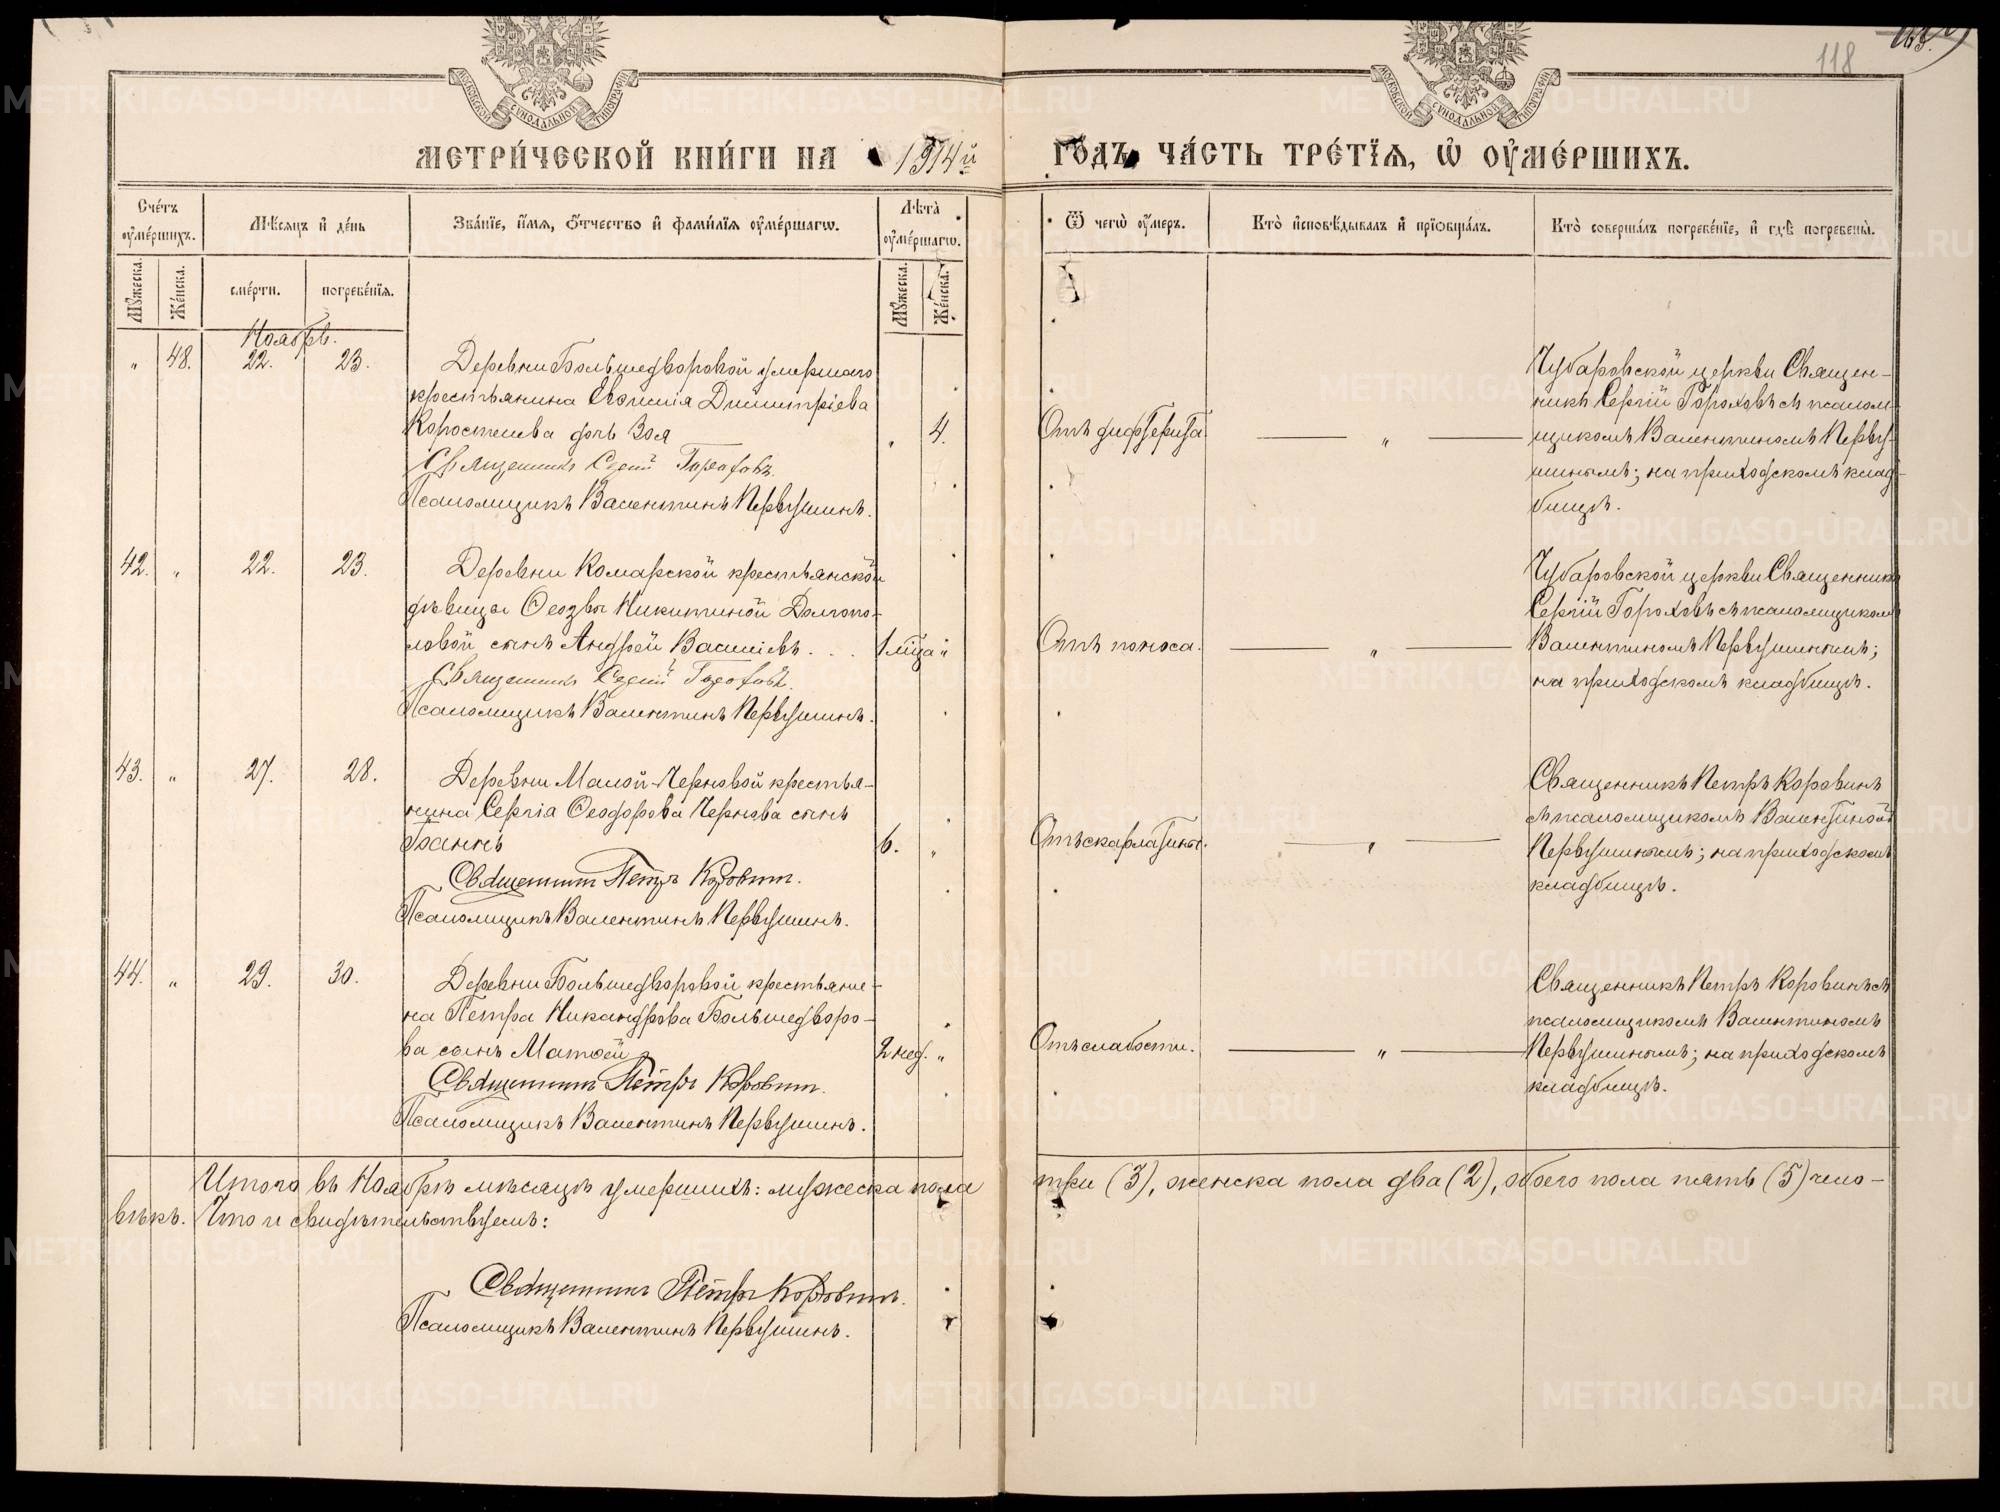 118
МОСКОВСКОЙ СѴНОДАЛЬНОЙ ТИПОГРАФІИ
МОСКОВСКОЙ СѴНОДАЛЬНОЙ ТИПОГРАФІИ
МЕТРИ́ЧЕСКОЙ КНИ́ГИ НА 1914й ГО́ДЪ, ЧА́СТЬ ТРЕ́ТЇѦ, Ѡ҆ ОУ҆МЕ́РШИХЪ.
Сче́тъ оу҆ме́ршихъ.
Мѣ́сѧцъ и҆ де́нь
Зва́нїе, и҆́мѧ, ѻ҆́тчество и҆ фами́лїѧ оу҆ме́ршагѡ.
Лѣ́та оу҆ме́ршагѡ.
Ѿ чегѡ̀ оу҆́меръ.
Кто̀ и҆сповѣ́дывалъ и҆ прїѡбща́лъ.
Кто̀ соверша́лъ погребе́нїе, и҆ гдѣ̀ погребены̀.
Мꙋ́жеска.
Же́нска.
сме́рти.
погребе́нїѧ.
Мꙋ́жеска.
Же́нска.
Ноябрь.
„ 48. 22. 23. Деревни Большедворовой умершаго
крестьянина Евфимія Димитріева
Коростелева дочь Зоя „ 4.
Священникъ Сергій Гороховъ.
Псаломщикъ Валентинъ Первушинъ.
Отъ дифтерита
„
Чубаровской церкви Священ-
никъ Сергій Гороховъ съ псалом-
щикомъ Валентиномъ Перву-
шинымъ; на приходскомъ клад-
бищѣ.
42. „ 22. 23. Деревни Комарской крестьянской
дѣвицы Феозвы Никитиной Долгопо-
ловой сынъ Андрей Васильевъ . . . 1 мца „
Священникъ Сергій Гороховъ.
Псаломщикъ Валентинъ Первушинъ.
Отъ поноса.
„
Чубаровской церкви Священникъ
Сергій Гороховъ съ псаломщикомъ
Валентиномъ Первушинымъ;
на приходскомъ кладбищѣ.
43. „ 27. 28. Деревни Малой-Черновой крестья-
нина Сергія Ѳеодорова Чернова сынъ
Іоаннъ 6. „
Священникъ Петръ Коровинъ.
Псаломщикъ Валентинъ Первушинъ.
Отъ скарлатины.
„
Священникъ Петръ Коровинъ
съ псаломщикомъ Валентиномъ
Первушинымъ; на приходскомъ
кладбищѣ.
44. „ 29. 30. Деревни Большедворовой крестьяни-
на Петра Никандрова Большедворо-
ва сынъ Матѳей 2 нед. „
Священникъ Петръ Коровинъ.
Псаломщикъ Валентинъ Первушинъ.
Отъ слабости.
„
Священникъ Петръ Коровинъ съ
псаломщикомъ Валентиномъ
Первушинымъ; на приходскомъ
кладбищѣ.
Итого въ Ноябрѣ мѣсяцѣ умершихъ: мужеска пола три (3), женска пола два (2), обоего пола пять (5) чело-
вѣкъ. Что и свидѣтельствуемъ:
Священникъ Петръ Коровинъ.
Псаломщикъ Валентинъ Первушинъ.
METRIKI.GASO-URAL.RU